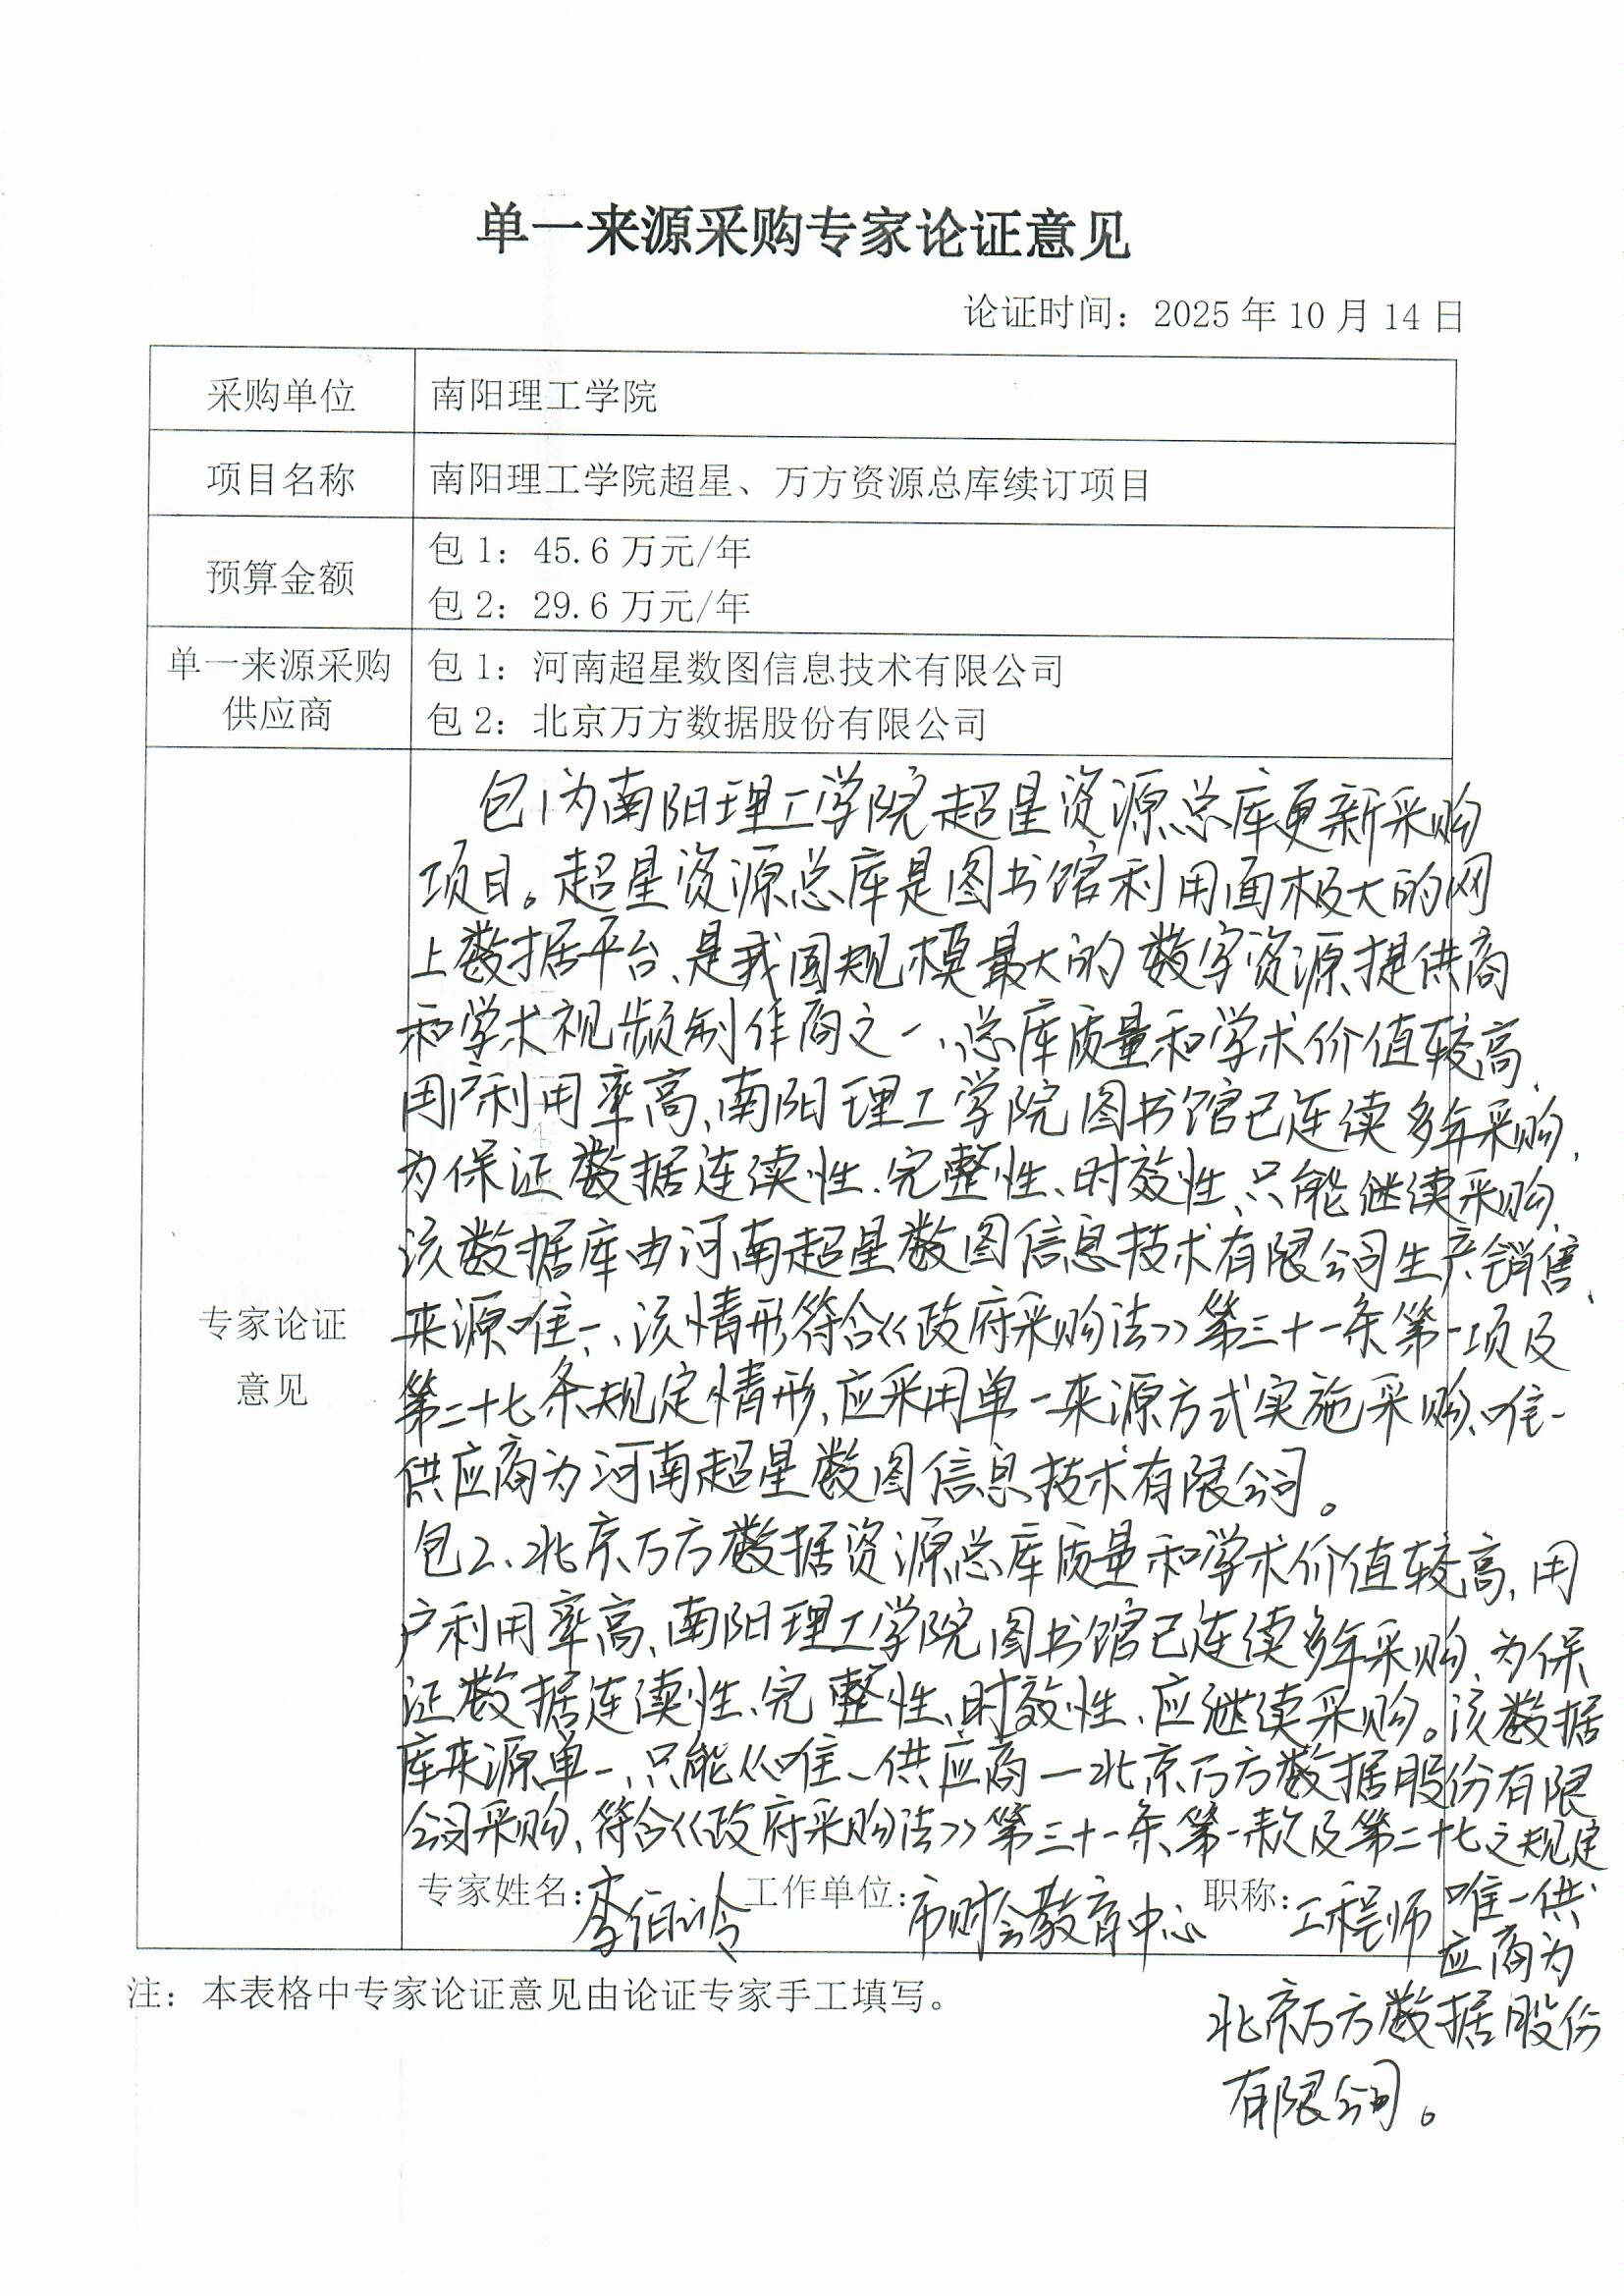 单一来源采购专家论证意见
论证时间：2025年10月14日
采购单位
南阳理工学院
项目名称
南阳理工学院超星、万方资源总库续订项目
预算金额
包1：45.6万元/年
包2：29.6万元/年
单一来源采购
供应商
包1：河南超星数图信息技术有限公司
包2：北京万方数据股份有限公司
专家论证
意见
包1为南阳理工学院超星资源总库更新采购
项目。超星资源总库是图书馆利用面极大的网
上数据平台、是我国规模最大的数字资源提供商
和学术视频制作商之一、总库质量和学术价值较高、
用户利用率高、南阳理工学院图书馆已连续多年采购、
为保证数据连续性、完整性、时效性、只能继续采购、
该数据库由河南超星数图信息技术有限公司生产销售、
来源唯一、该情形符合《政府采购法》第三十一条第一项及
第二十七条规定情形、应采用单一来源方式实施采购、唯一
供应商为河南超星数图信息技术有限公司。
包2、北京万方数据资源总库质量和学术价值较高、用
户利用率高、南阳理工学院图书馆已连续多年采购、为保
证数据连续性、完整性、时效性、应继续采购。该数据
库来源单一、只能从唯一供应商—北京万方数据股份有限
公司采购、符合《政府采购法》第三十一条第一款及第二十七之规定
唯一供
应商为
北京万方数据股份
有限公司。
专家姓名：李伯玲 工作单位：市财会教育中心 职称：工程师
注：本表格中专家论证意见由论证专家手工填写。